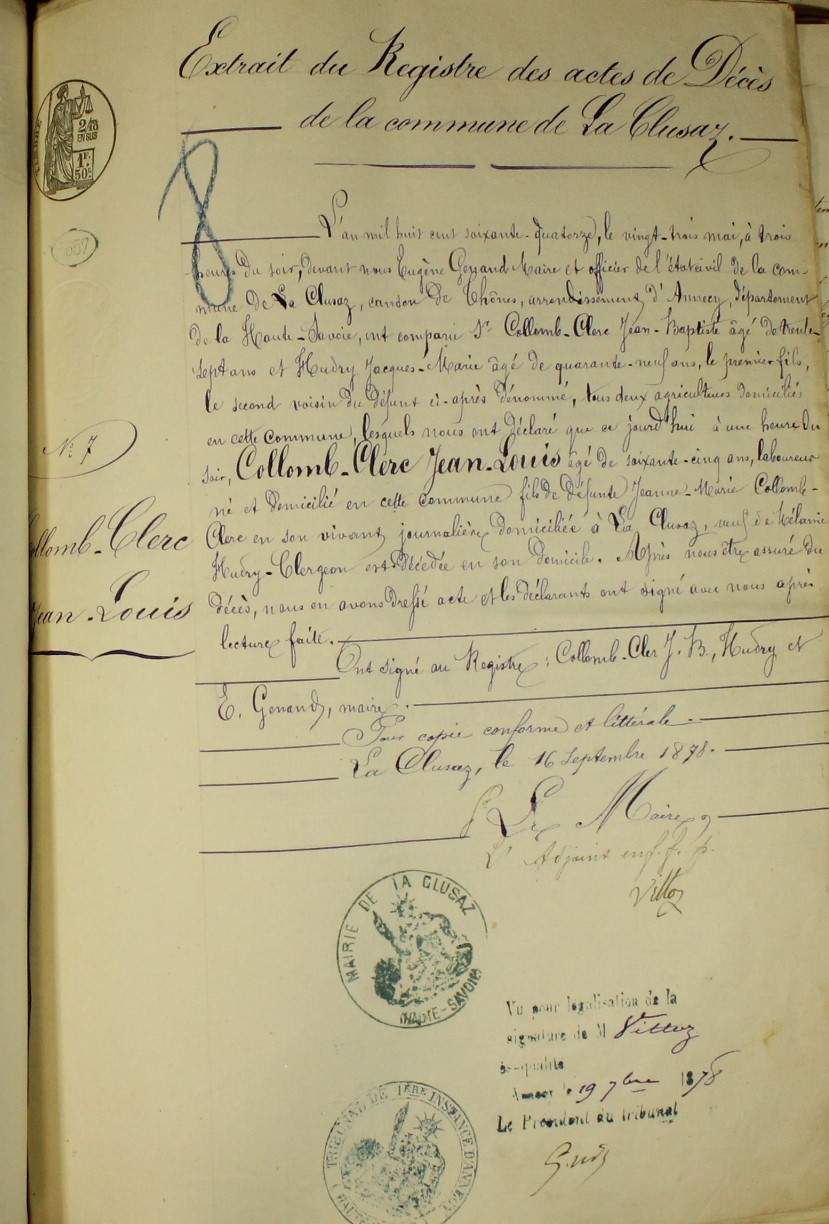 Extrait du Registre des actes de Décès
de la commune de La Clusaz.
2/10
EN SUS
1F.
50c.
8
657
L'an mil huit cent soixante-quatorze, le vingt-trois mai, à trois
heures du soir, devant nous Eugène Genand Maire et officier de l'état civil de la com-
mune de La Clusaz, canton de Thônes, arrondissement d'Annecy, département
de la Haute-Savoie, ont comparu Sr Collomb-Clerc Jean-Baptiste âgé de trente-
sept ans et Hudry Jacques-Marie âgé de quarante-neuf ans, le premier fils,
le second voisin du défunt ci-après dénommé, tous deux agriculteurs domiciliés
en cette commune, lesquels nous ont déclaré que ce jourd'hui à une heure du
soir, Collomb-Clerc Jean-Louis âgé de soixante-cinq ans, laboureur
né et domicilié en cette commune fils de défunte Jeanne-Marie Collomb-
Clerc en son vivant journalière domiciliée à La Clusaz, veuf de Mélanie
Hudry-Clergeon est décédée en son domicile. Après nous être assuré du
décès, nous en avons dressé acte et les déclarants ont signé avec nous après
lecture faite.
Ont signé au Registre : Collomb-Cler J. B., Hudry et
E. Genand, maire.
Pour copie conforme et littérale.
La Clusaz, le 16 Septembre 1878.
N° 7
Collomb-Clerc
Jean-Louis
P Le Maire,
L'Adjoint
Vittoz
MAIRIE DE LA CLUSAZ
HAUTE-SAVOIE
Vu pour légalisation de la
signature de M Vittoz
ès-qualité
Annecy le 19 7bre 1878
Le Président du tribunal
TRIBUNAL DE 1ÈRE INSTANCE D'ANNECY